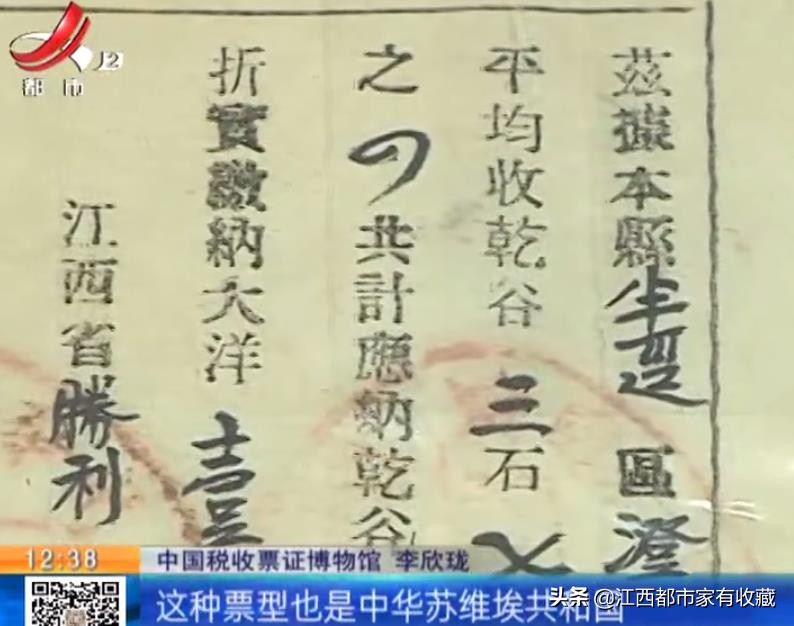 J2
都市
茲據本縣半逕區澄
平均收乾谷三石
之 共計應納乾谷
折實繳納大洋壹
江西省勝利
12:38
中国税收票证博物馆 李欣珑
这种票型也是中华苏维埃共和国
头条 @江西都市家有收藏